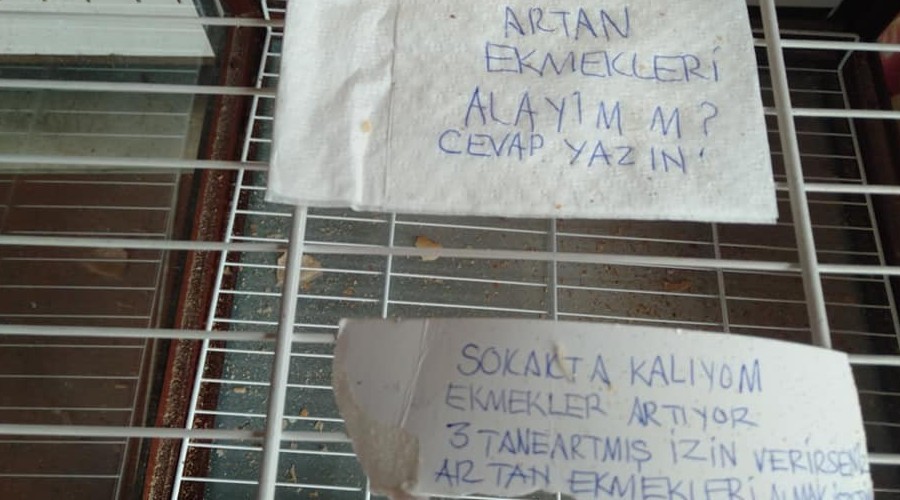 ARTAN
EKMEKLERİ
ALAYIM M?
CEVAP YAZIN
SOKAKTA KALIYOM
EKMEKLER ARTIYOR
3 TANEARTMIŞ İZİN
ARTAN EKMEKLERİ